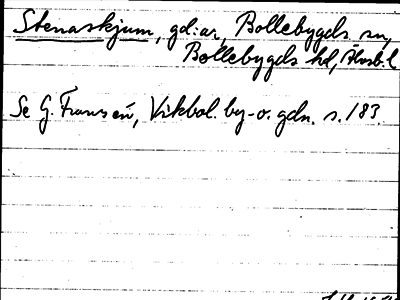 Stenaskjum, gd:ar, Bollebygds sn,
Bollebygds hd, Älvsb. l
Se G. Fransén, Vikbol. by- o. gdn. s. 183.